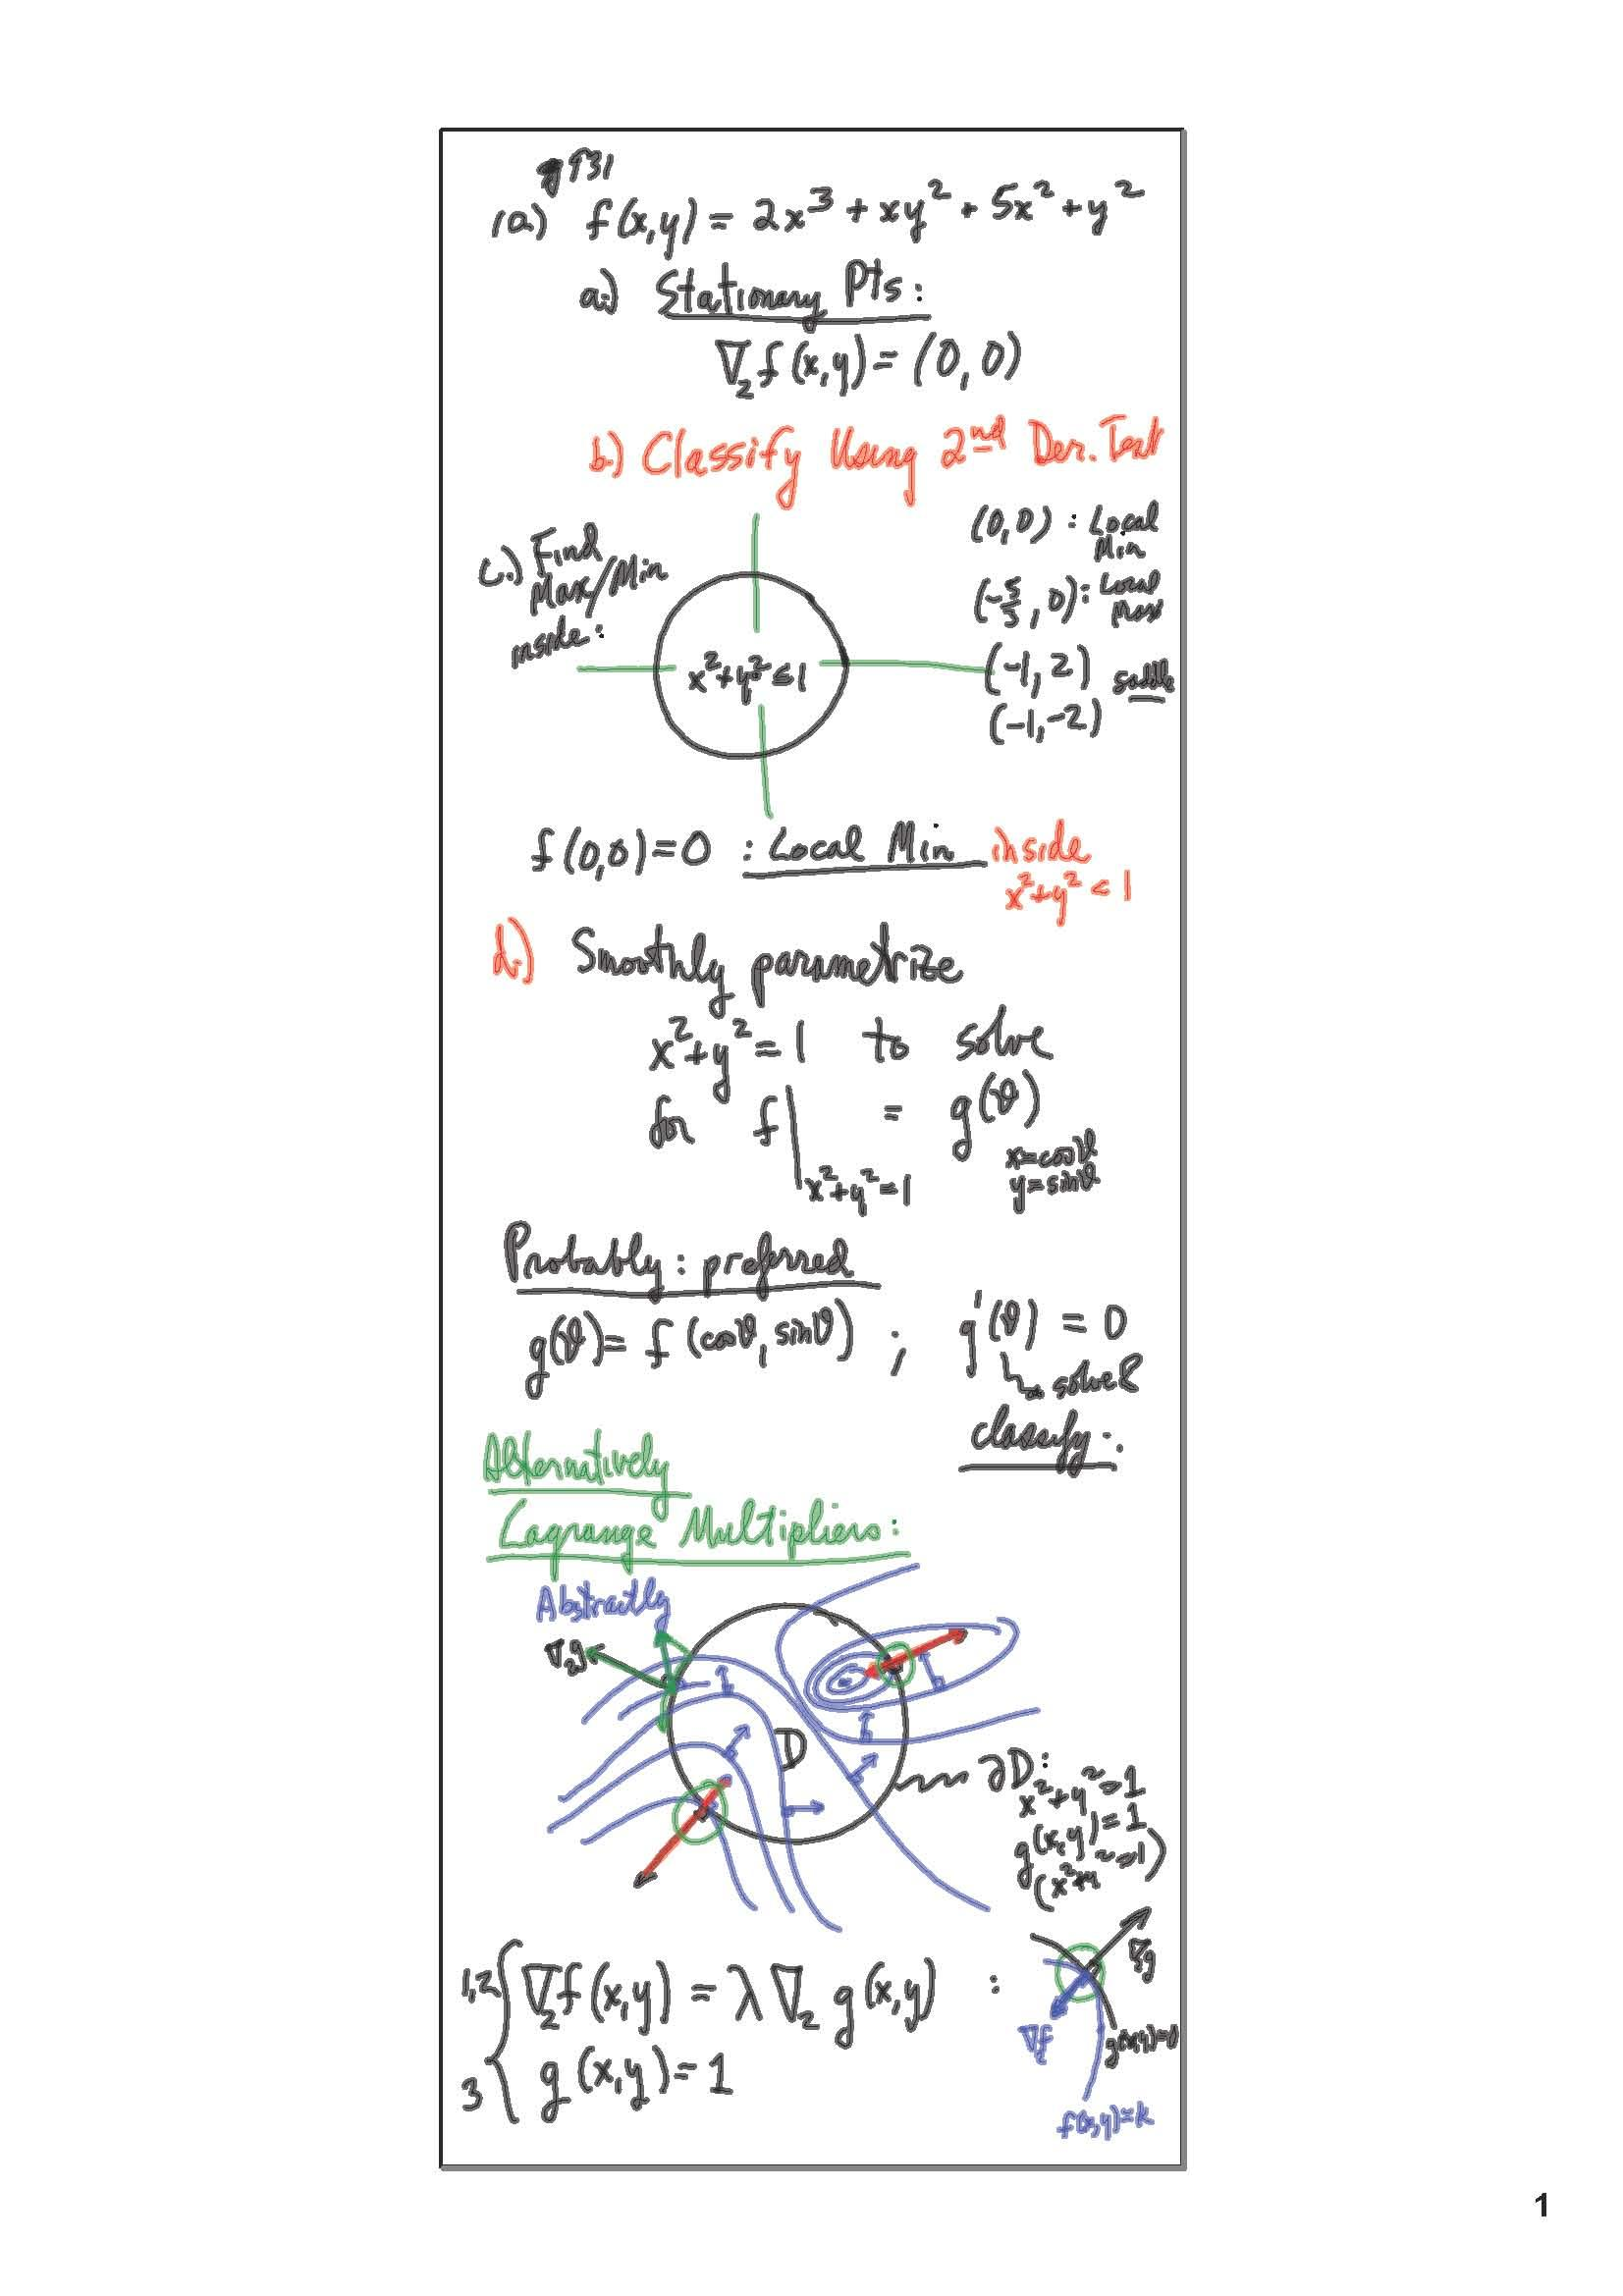 g931
1a) f(x,y) = 2x³ + xy² + 5x² + y²
a.) Stationary Pts:
∇₂f(x,y) = (0,0)
b.) Classify Using 2nd Der. Test
c.) Find
Max/Min
inside:
x²+y² ≤ 1
(0,0) : Local
Min
(-5/3, 0) : Local
Max
(-1, 2) saddle
(-1, -2)
f(0,0)=0 : Local Min inside
x²+y² < 1
d.) Smoothly parametrize
x²+y² = 1 to solve
for f| = g(ϑ)
x²+y²=1
x=cosϑ
y=sinϑ
Probably: preferred
g(ϑ) = f(cosϑ, sinϑ) ; g'(ϑ) = 0
solve &
classify.
Alternatively
Lagrange Multipliers:
Abstractly
∇₂g
D
∂D:
x²+y²=1
g(x,y)=1
1,2 { ∇₂f(x,y) = λ∇₂ g(x,y) :
3 { g(x,y) = 1
∇g
∇f
g(x,y)=0
f(x,y)=k
1